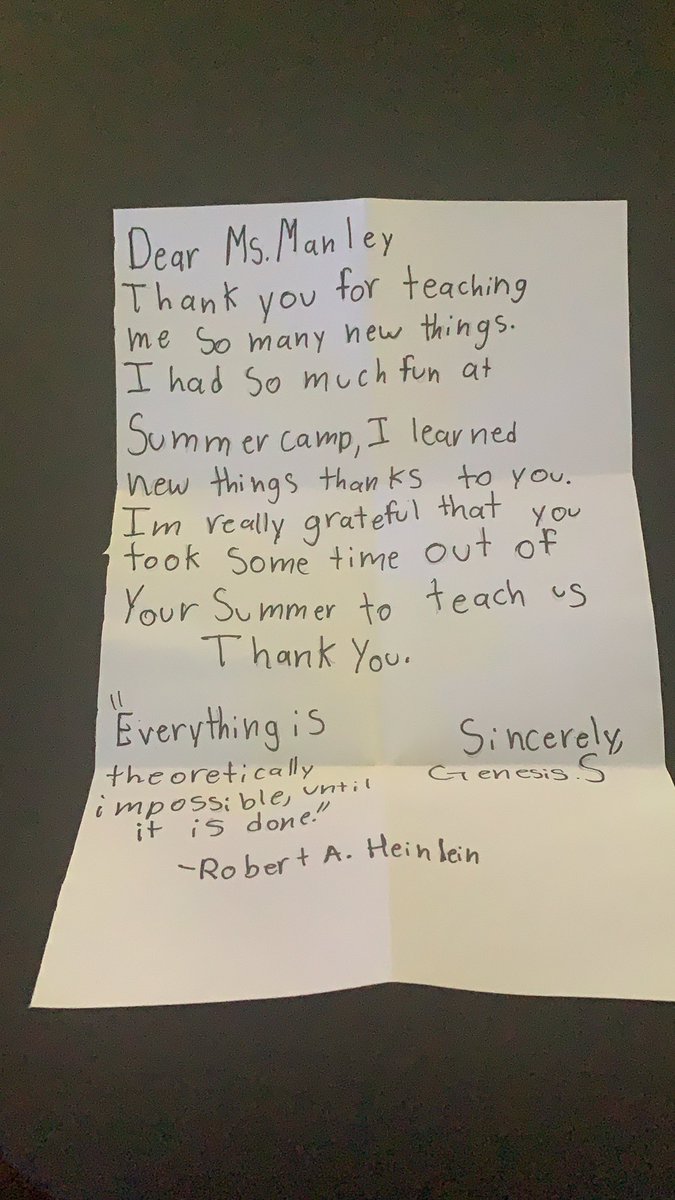 Dear Ms. Manley
Thank you for teaching
me so many new things.
I had so much fun at
Summer camp, I learned
new things thanks to you.
Im really grateful that you
took some time out of
Your Summer to teach us
Thank You.
"Everything is
theoretically
impossible, until
it is done."
-Robert A. Heinlein
Sincerely,
Genesis.S